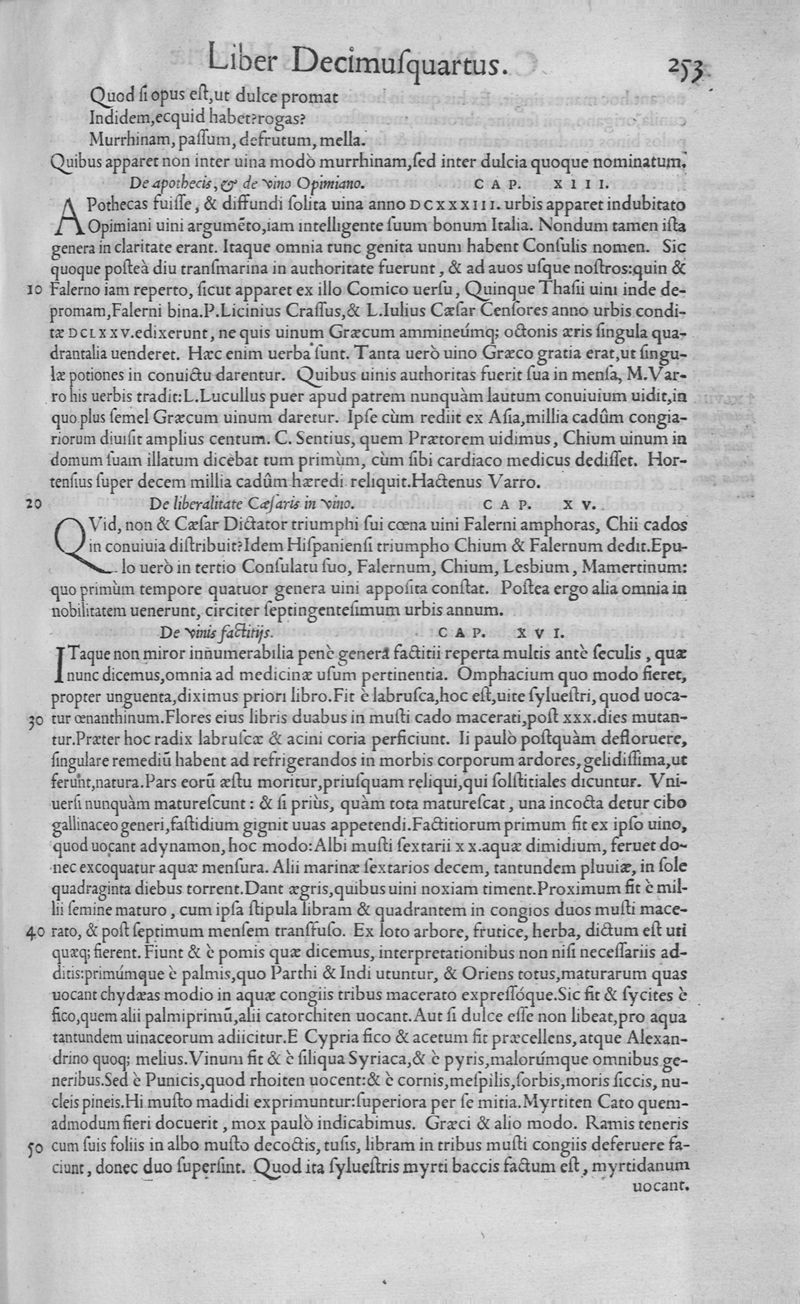 Liber Decimuſquartus. 253
Quod ſi opus eſt,ut dulce promat
Indidem,ecquid habet?rogas?
Murrhinam, paſſum, defrutum, mella.
Quibus apparet non inter uina modò murrhinam,ſed inter dulcia quoque nominatum.
De apothecis, & de vino Opimiano. CAP. XIIII.
APothecas fuiſſe, & diffundi ſolita uina anno DCXXXIII. urbis apparet indubitato
Opimiani uini argumẽto,iam intelligente ſuum bonum Italia. Nondum tamen iſta
genera in claritate erant. Itaque omnia tunc genita unum habent Conſulis nomen. Sic
quoque poſteà diu tranſmarina in authoritate fuerunt, & ad auos uſque noſtros:quin &
10 Falerno iam reperto, ſicut apparet ex illo Comico uerſu, Quinque Thaſii uini inde de-
promam,Falerni bina.P.Licinius Craſſus,& L.Iulius Cæſar Cenſores anno urbis condi-
tæ DCLXXV.edixerunt, ne quis uinum Græcum ammineúmq; octonis æris ſingula qua-
drantalia uenderet. Hæc enim uerba ſunt. Tanta uerò uino Græco gratia erat,ut ſingu-
læ potiones in conuictu darentur. Quibus uinis authoritas fuerit ſua in menſa, M.Var-
ro his uerbis tradit:L.Lucullus puer apud patrem nunquàm lautum conuiuium uidit,in
quo plus ſemel Græcum uinum daretur. Ipſe cùm rediit ex Aſia,millia cadûm congia-
riorum diuiſit amplius centum. C. Sentius, quem Prætorem uidimus, Chium uinum in
domum ſuam illatum dicebat tum primùm, cùm ſibi cardiaco medicus dediſſet. Hor-
tenſius ſuper decem millia cadûm hæredi reliquit.Hactenus Varro.
20 De liberalitate Cæſaris in vino. CAP. XV.
QVid, non & Cæſar Dictator triumphi ſui cœna uini Falerni amphoras, Chii cados
in conuiuia diſtribuit?Idem Hiſpanienſi triumpho Chium & Falernum dedit.Epu-
lo uerò in tertio Conſulatu ſuo, Falernum, Chium, Lesbium, Mamertinum:
quo primùm tempore quatuor genera uini appoſita conſtat. Poſtea ergo alia omnia in
nobilitatem uenerunt, circiter ſeptingenteſimum urbis annum.
De vinis factitijs. CAP. XVI.
ITaque non miror innumerabilia penè genera factitii reperta multis antè ſeculis, quæ
nunc dicemus,omnia ad medicinæ uſum pertinentia. Omphacium quo modo fieret,
propter unguenta,diximus priori libro.Fit è labruſca,hoc eſt,uite ſylueſtri, quod uoca-
30 tur œnanthinum.Flores eius libris duabus in muſti cado macerati,poſt xxx.dies mutan-
tur.Præter hoc radix labruſcæ & acini coria perficiunt. Ii paulò poſtquàm defloruere,
ſingulare remediũ habent ad refrigerandos in morbis corporum ardores,gelidiſſima,ut
ferunt,natura.Pars eorũ æſtu moritur,priuſquam reliqui,qui ſolſtitiales dicuntur. Vni-
uerſi nunquàm matureſcunt: & ſi priùs, quàm tota matureſcat, una incocta detur cibo
gallinaceo generi,faſtidium gignit uuas appetendi.Factitiorum primum fit ex ipſo uino,
quod uocant adynamon, hoc modo:Albi muſti ſextarii xx.aquæ dimidium, feruet do-
nec excoquatur aquæ menſura. Alii marinæ ſextarios decem, tantundem pluuiæ, in ſole
quadraginta diebus torrent.Dant ægris,quibus uini noxiam timent.Proximum fit è mil-
lii ſemine maturo, cum ipſa ſtipula libram & quadrantem in congios duos muſti mace-
40 rato, & poſt ſeptimum menſem tranſfuſo. Ex loto arbore, frutice, herba, dictum eſt uti
quæq; fierent. Fiunt & è pomis quæ dicemus, interpretationibus non niſi neceſſariis ad-
ditis:primúmque è palmis,quo Parthi & Indi utuntur, & Oriens totus,maturarum quas
uocant chydæas modio in aquæ congiis tribus macerato expreſſóque.Sic fit & ſycites è
fico,quem alii palmiprimũ,alii catorchiten uocant.Aut ſi dulce eſſe non libeat,pro aqua
tantundem uinaceorum adiicitur.E Cypria fico & acetum fit præcellens,atque Alexan-
drino quoq; melius.Vinum fit & è ſiliqua Syriaca,& è pyris,malorúmque omnibus ge-
neribus.Sed è Punicis,quod rhoiten uocent:& è cornis,meſpilis,ſorbis,moris ſiccis, nu-
cleis pineis.Hi muſto madidi exprimuntur:ſuperiora per ſe mitia.Myrtiten Cato quem-
admodum fieri docuerit, mox paulò indicabimus. Græci & alio modo. Ramis teneris
50 cum ſuis foliis in albo muſto decoctis, tuſis, libram in tribus muſti congiis deferuere fa-
ciunt, donec duo ſuperſint. Quod ita ſylueſtris myrti baccis factum eſt, myrtidanum
uocant.